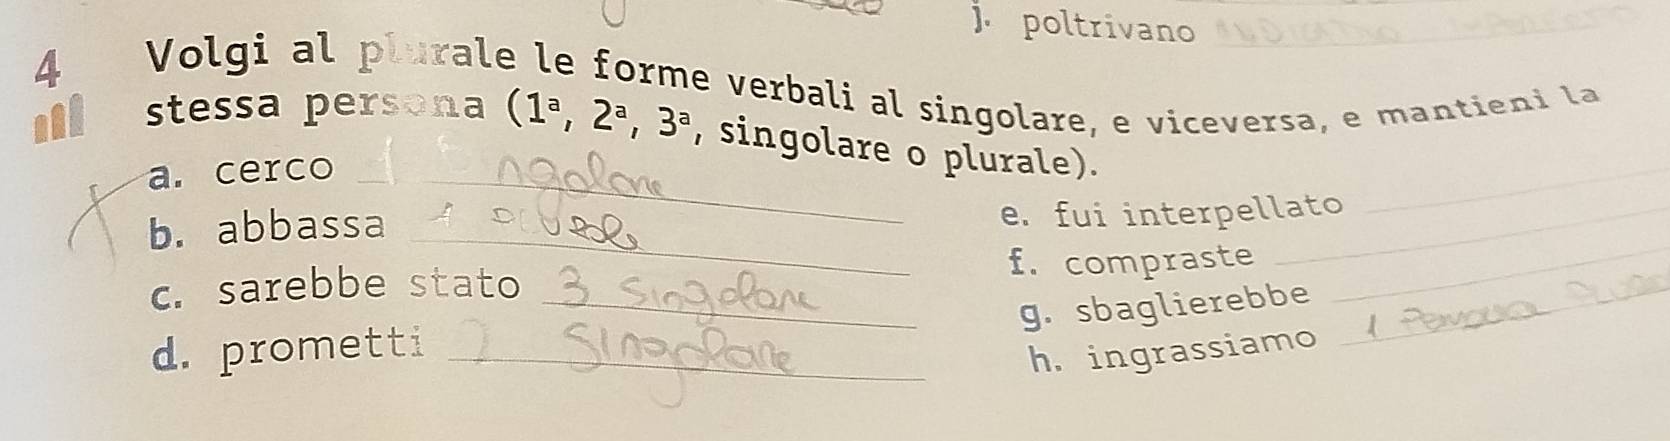 j. poltrivano
4 Volgi al plurale le forme verbali al singolare, e viceversa, e mantieni la
stessa persona (1ª, 2ª, 3ª, singolare o plurale).
a. cerco 1
b. abbassa
c. sarebbe stato 3 singolare
d. prometti 2 singolare
e. fui interpellato
f. compraste
g. sbaglierebbe
h. ingrassiamo 1 Persona